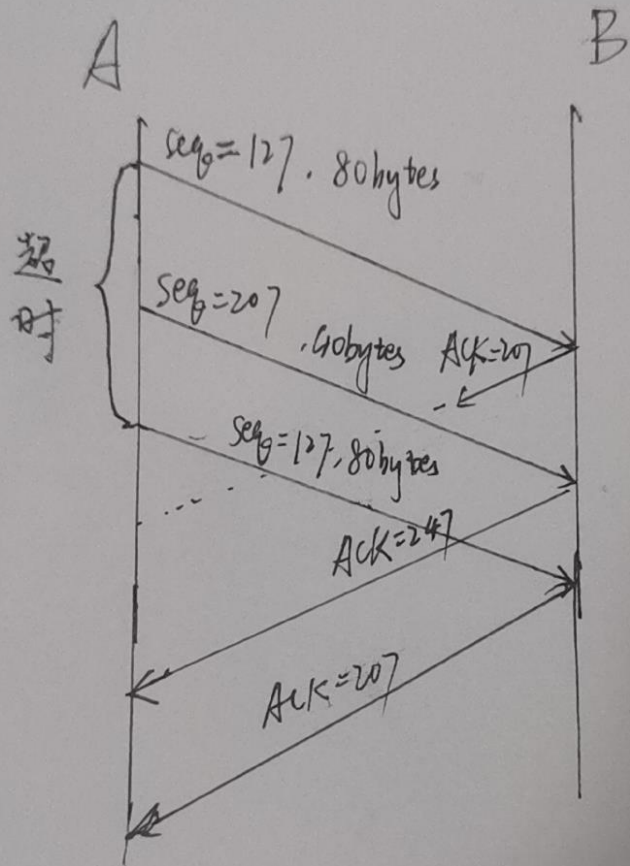 A
B
seq=127. 80bytes
超时
seq=207
.40bytes
ACK=207
seq=127.80bytes
ACK=247
ACK=207